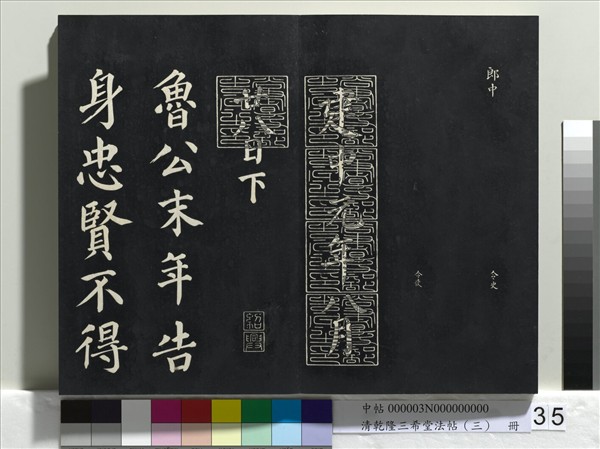 郎中
令史
令史
建中元年八月
廿八日下
紹興
魯公末年告
身忠賢不得
中帖 000003N000000000
清乾隆三希堂法帖（三） 冊
35